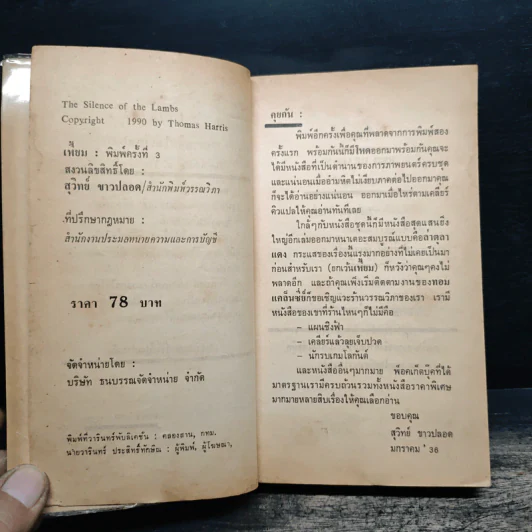 The Silence of the Lambs
Copyright 1990 by Thomas Harris
เฟี้ยม : พิมพ์ครั้งที่ 3
สงวนลิขสิทธิ์โดย :
สุวิทย์ ขาวปลอด/สำนักพิมพ์วรรณวิภา
ที่ปรึกษากฎหมาย :
สำนักงานประมวลทนายความและการบัญชี
ราคา 78 บาท
จัดจำหน่ายโดย :
บริษัท ธนบรรณจัดจำหน่าย จำกัด
พิมพ์ที่วารินทร์พับลิเคชั่น : คลองสาน, กทม.
นายวารินทร์ ประสิทธิ์ทักษิณ : ผู้พิมพ์, ผู้โฆษณา,
คุยกัน :
พิมพ์อีกครั้งเพื่อคุณที่พลาดจากการพิมพ์สอง
ครั้งแรก พร้อมกันนี้ก็มีไทยออกมาพร้อมกันคุณจะ
ได้มีหนังสือที่เป็นตำนานของการภาพยนตร์ครบชุด
และแน่นอนเมื่ออำมหิตไม่เงียบภาคต่อไปออกมาคุณ
ก็จะได้อ่านอย่างแน่นอน ออกมาเมื่อไหร่ตามเคลียร์
คิวแปลให้คุณอ่านทันทีเลย
ใกล้ๆกับหนังสือชุดนี้ก็มีหนังสือสุดแสนยิ่ง
ใหญ่อีกเล่มออกมาหนาเตอะสมบูรณ์แบบคือล่าตุลา
แดง กระแสของเรื่องนี้แรงมากอย่างที่ไม่เคยเป็นมา
ก่อนสำหรับเรา (ยกเว้นเฟี้ยม) ก็หวังว่าคุณๆคงไม่
พลาดอีก และถ้าคุณเพิ่งเริ่มติดตามงานของทอม
แคล็นซี่ย์ก็ขอเชิญแวะร้านวรรณวิภาของเรา เรามี
หนังสือของเขาที่ร้านไหนๆก็ไม่มีคือ
– แผนชิงฟ้า
– เคลียร์แล้วลุยเจ็บปวด
– นักรบเกมโลกันต์
และหนังสืออื่นๆมากมาย พ็อคเก็ตบุ๊คที่ได้
มาตรฐานเรามีครบถ้วนรวมทั้งหนังสือราคาพิเศษ
มากมายหลายสิบเรื่องให้คุณเลือกอ่าน
ขอบคุณ
สุวิทย์ ขาวปลอด
มกราคม '36